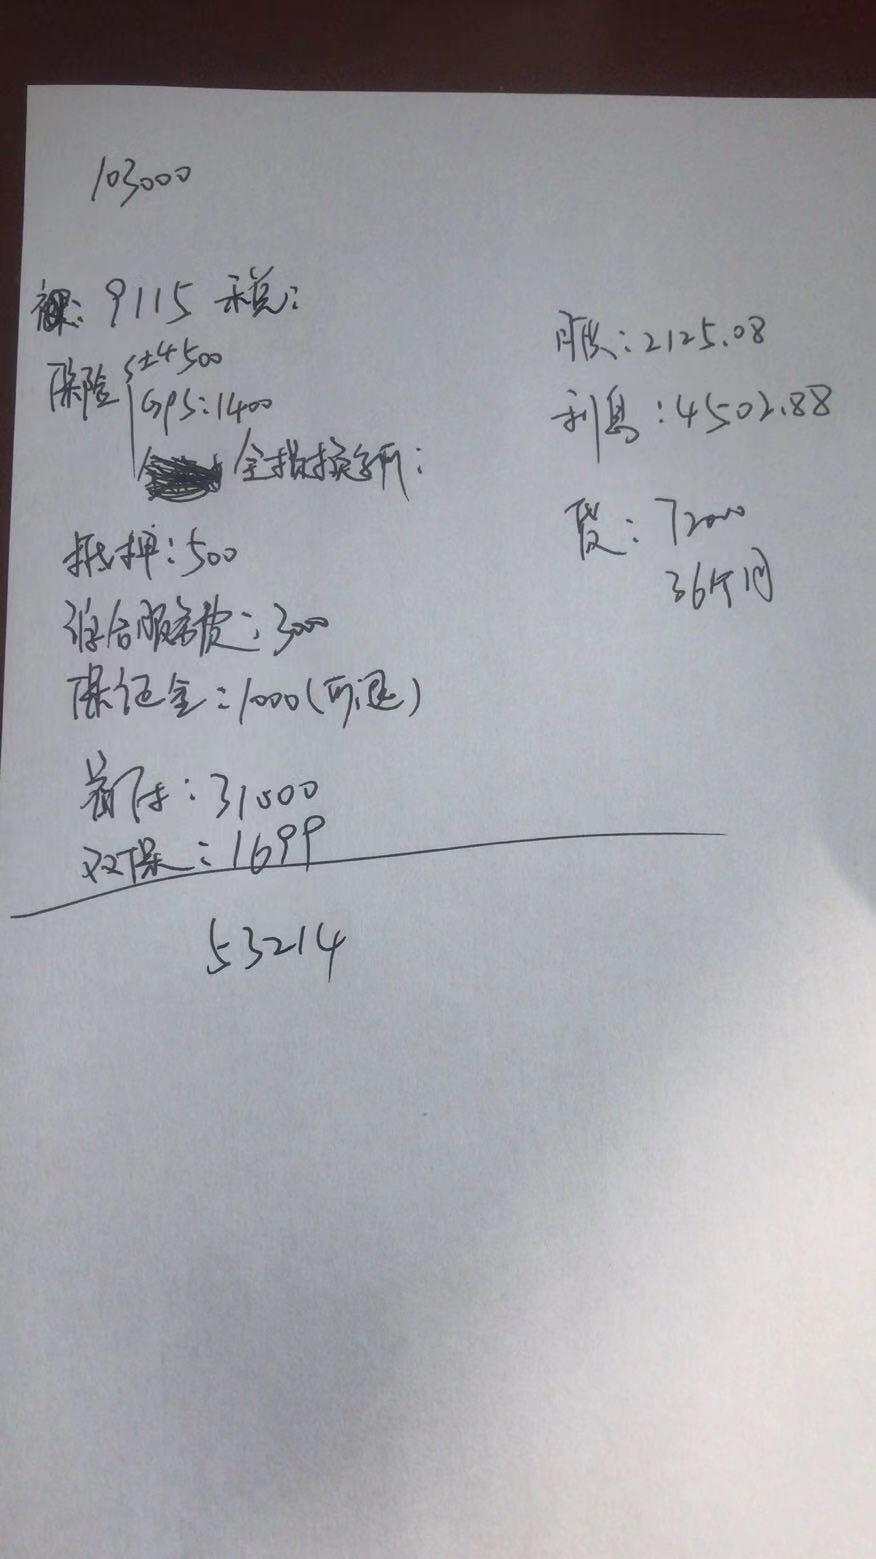 103000
裸: 9115 税:
保险 ±4500
GPS:1400
全损换新:
抵押:500
综合服务费:3000
保证金:1000(可退)
首付:31000
双保:1699
53214
月供:2125.08
利息:4502.88
贷:72000
36个月